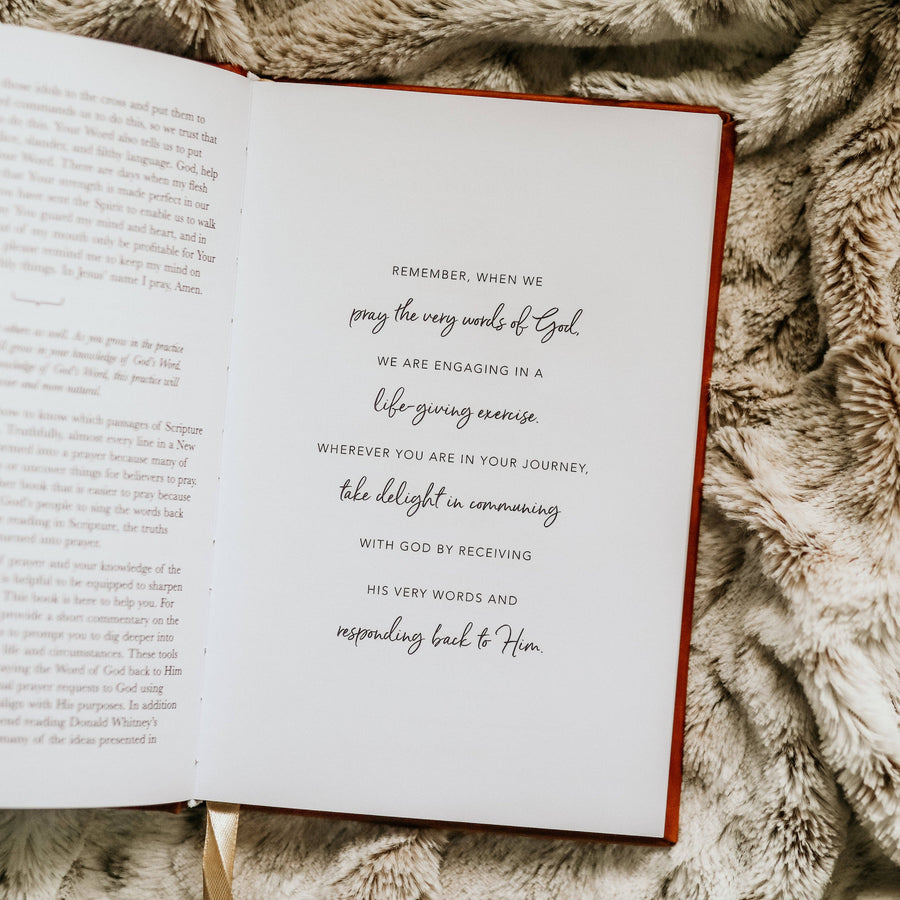 those idols to the cross and put them to
commands us to do this, so we trust that
do this. Your Word also tells us to put
slander, and filthy language. God, help
Your Word. There are days when my flesh
that Your strength is made perfect in our
have sent the Spirit to enable us to walk
You guard my mind and heart, and in
out of my mouth only be profitable for Your
please remind me to keep my mind on
things. In Jesus' name I pray, Amen.
others as well. As you grow in the practice
grow in your knowledge of God's Word.
knowledge of God's Word, this practice will
and more natural.
how to know which passages of Scripture
Truthfully, almost every line in a New
turned into a prayer because many of
or uncover things for believers to pray.
book that is easier to pray because
God's people to sing the words back
reading in Scripture, the truths
turned into prayer.
prayer and your knowledge of the
is helpful to be equipped to sharpen
This book is here to help you. For
provide a short commentary on the
to prompt you to dig deeper into
life and circumstances. These tools
praying the Word of God back to Him
prayer requests to God using
align with His purposes. In addition
reading Donald Whitney's
many of the ideas presented in
REMEMBER, WHEN WE
pray the very words of God,
WE ARE ENGAGING IN A
life-giving exercise.
WHEREVER YOU ARE IN YOUR JOURNEY,
take delight in communing
WITH GOD BY RECEIVING
HIS VERY WORDS AND
responding back to Him.